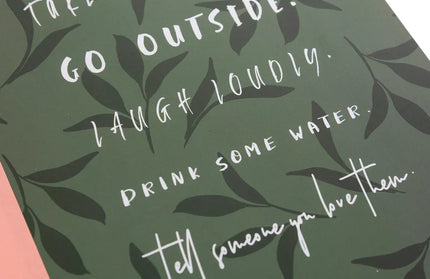 GO OUTSIDE.
LAUGH LOUDLY.
DRINK SOME WATER.
Tell someone you love them.